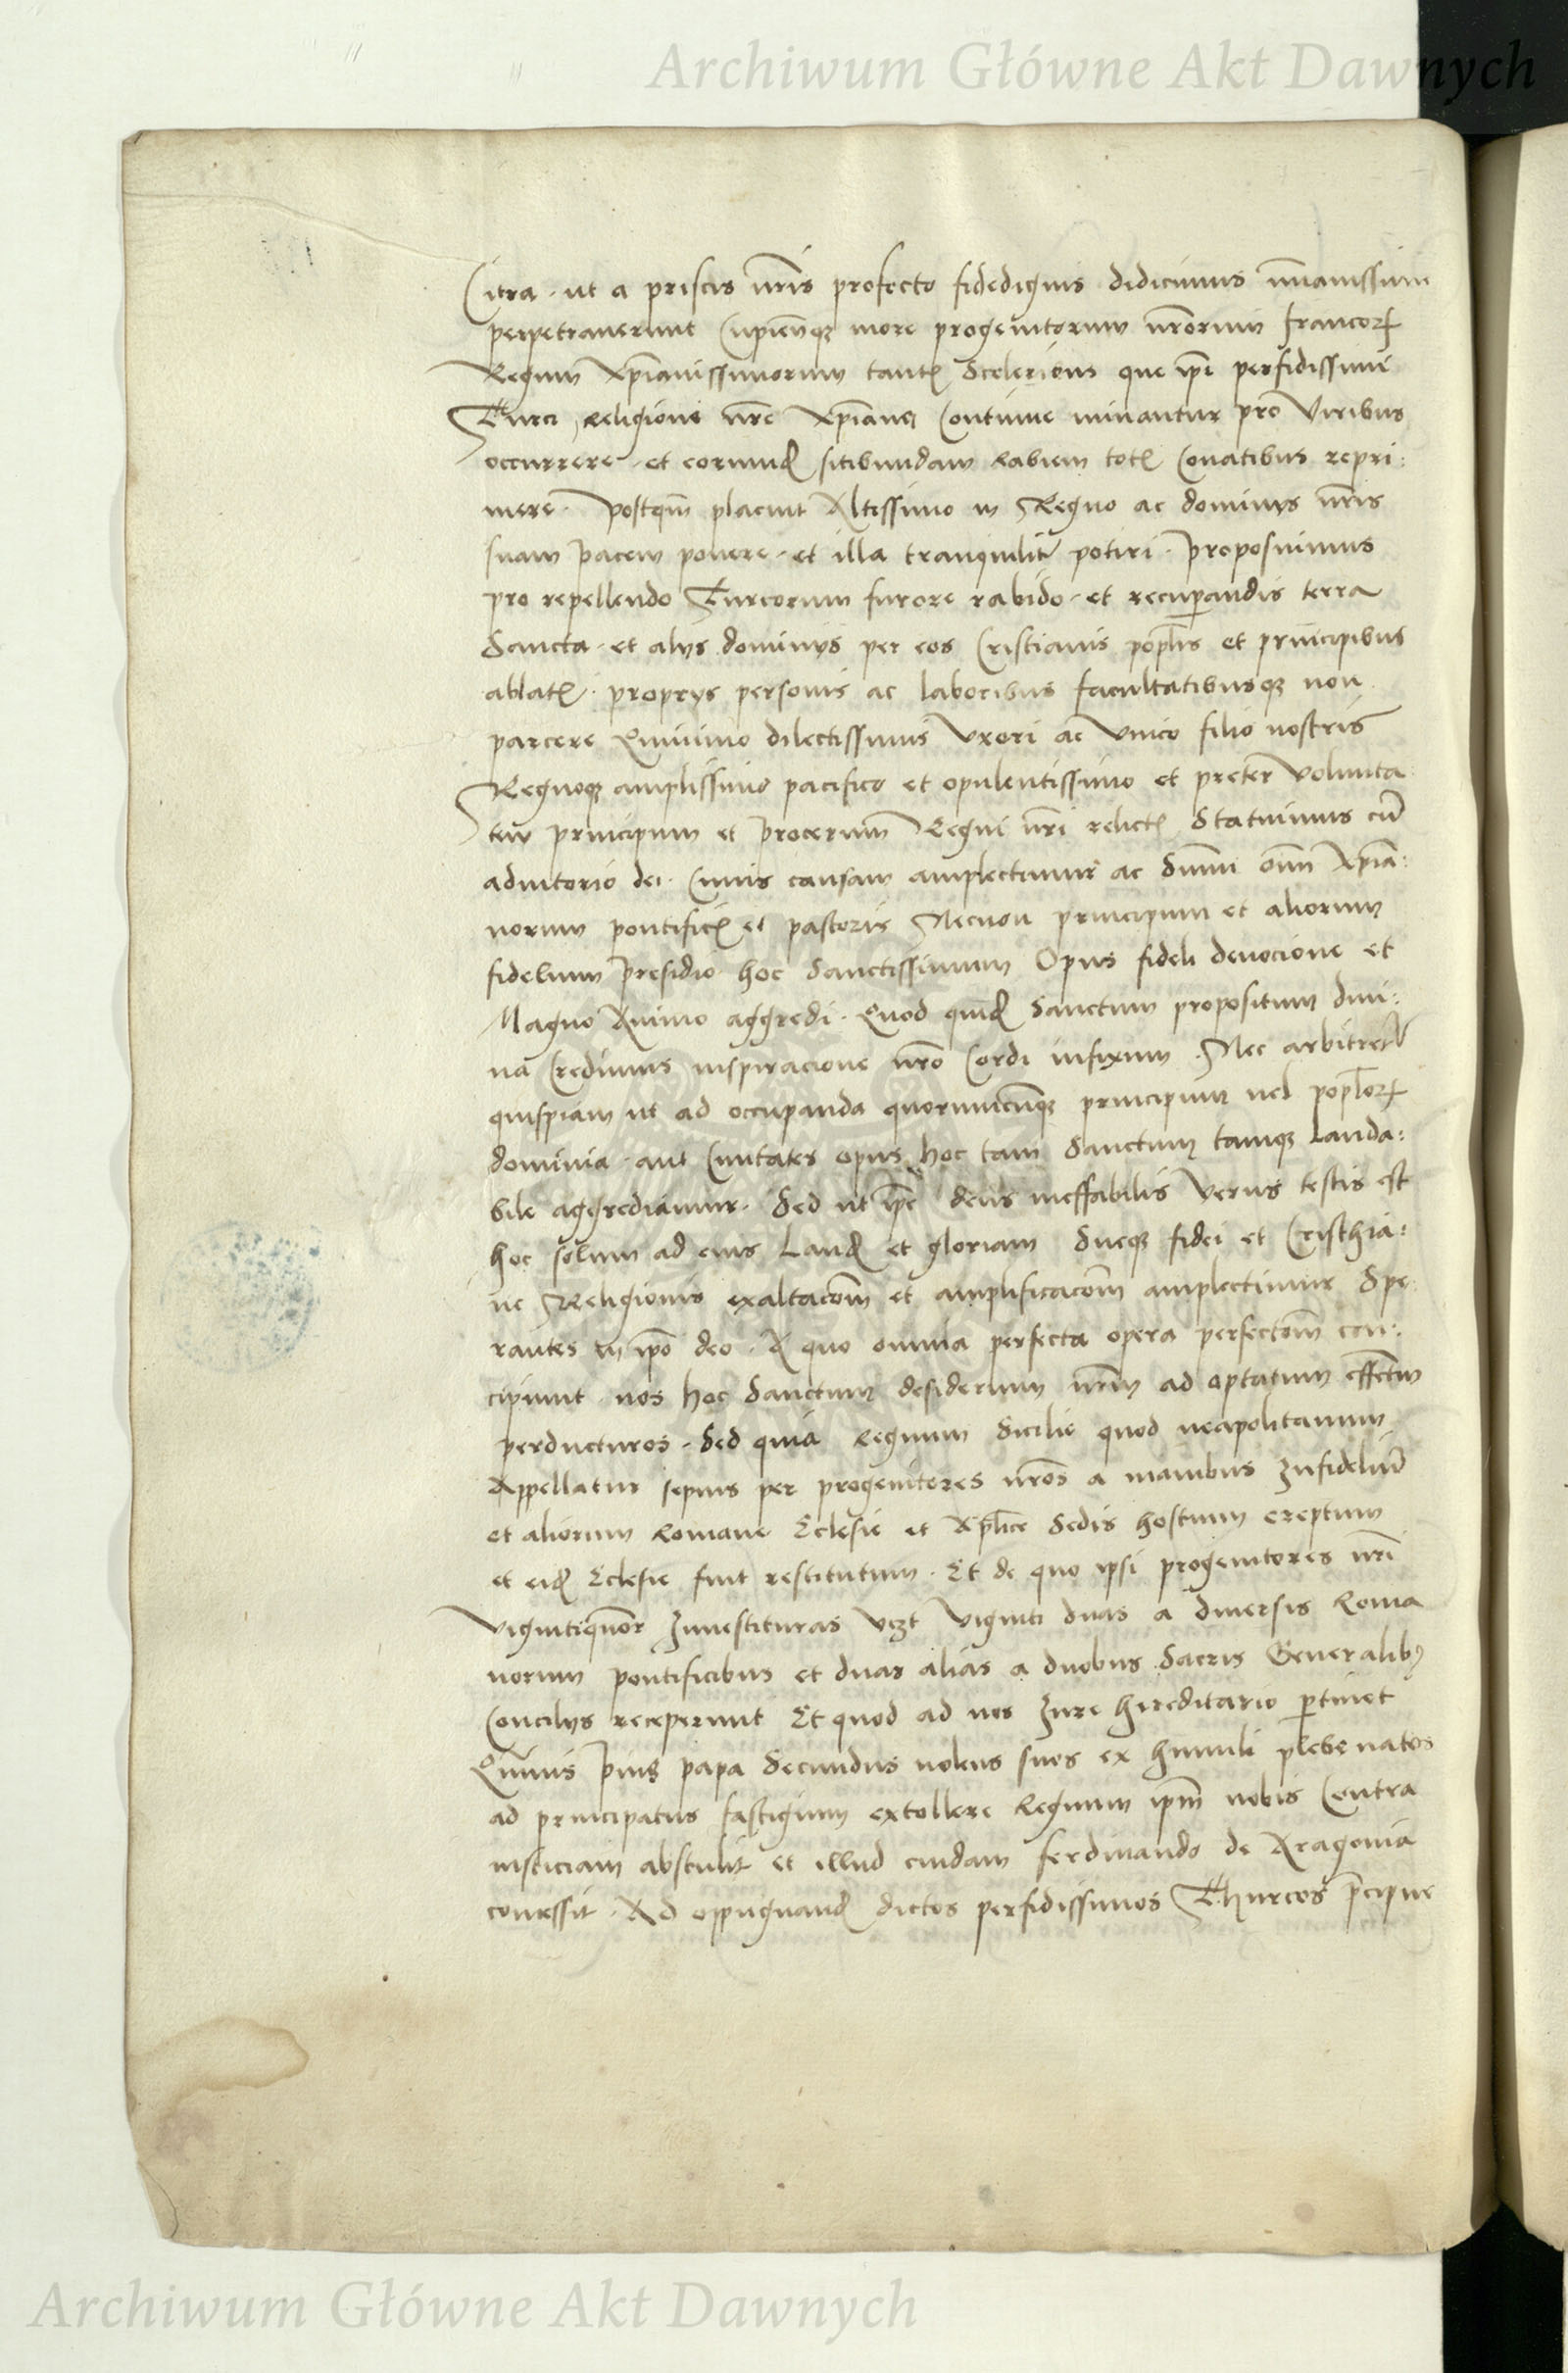 Archiwum Główne Akt Dawnych
Citra · ut a priscis nr̃is profecto fidedignis didicimus
perpetraverunt Cupientesqȝ more progenitorum nr̃orum francorꝝ
Regum xp̃ianissimorum tantis Sceleribus que ip̃i perfidissimi
Turci Religioni nr̃e xp̃iane Continue minantur pro Viribus
occurrere · et eorumdẽ sitibundam Rabiem totis Conatibus repri:
mere · Postq̃m placuit Altissimo in Regno ac dominijs nr̃is
suam pacem ponere · et illa tranquillitẽ potiri · proposuimus
pro repellendo Turcorum furore rabido · et recuꝑandis terra
Sancta · et alijs dominijs per eos Cristianis pop̃lis et principibus
ablatis · proprijs personis ac laboribus facultatibusqȝ non
parcere Quinimo dilectissimis Vxori ac Vnico filio nostris
Regnoqȝ amplissimo pacifico et opulentissimo et preter̃ Volunta
tem principum et procerum Regni nr̃i relictis Statuimus cũ
adiutorio dei · Cuius causam amplectimur ac Sum̃i om̃i xp̃ia:
norum pontificis et pastoris Necnon principum et aliorum
fidelium presidio hoc Sanctissimum Opus fideli devocione et
Magno Animo aggredi · Quod quidẽ Sanctum propositum divi:
na Credimus inspiracione nr̃o Cordi infixum · Nec arbitretur
quispiam ut ad occupanda quorumcũqȝ principum vel pop̃lorꝝ
dominia · aut Civitates opus hoc tam Sanctum tamqȝ Lauda:
bile aggrediamur · Sed ut ip̃e deus ineffabilis Verus testis est
hoc solum ad eius Laudẽ et gloriam Sueqȝ fidei et Cristhia:
ne Religionis exaltacõm et amplificacõm amplectimur Spe
rantes in ip̃o deo · A quo omnia perfecta opera perfectõm con:
cipiunt · nos hoc Sanctum desiderium nr̃m ad optatum effectũ
perducturos · Sed quia Regnum Sicilie quod neapolitanum
Appellatur sepius per progenitores nr̃os a manibus Infideliũ
et aliorum Romane Eclesie et Ap̃lice Sedis hostium ereptum
et eidẽ Eclesie fuit restitutum · Et de quo ipsi progenitores nr̃i
Vigintiquãor Investituras Vcȝt Viginti duas a diversis Roma
norum pontificibus et duas alias a duobus Sacris Generalibꝰ
Concilijs receperunt Et quod ad nos Iure hereditario ꝑtinet
Quãvis pius papa Secundus volens suos ex humili plebe natos
ad principatus fastigium extollere Regnum ip̃m nobis Contra
iusticiam abstulit et illud cuidam ferdinando de Aragonia
concessit · Ad oppugnandẽ dictos perfidissimos Thurcos p̃cipue
Archiwum Główne Akt Dawnych